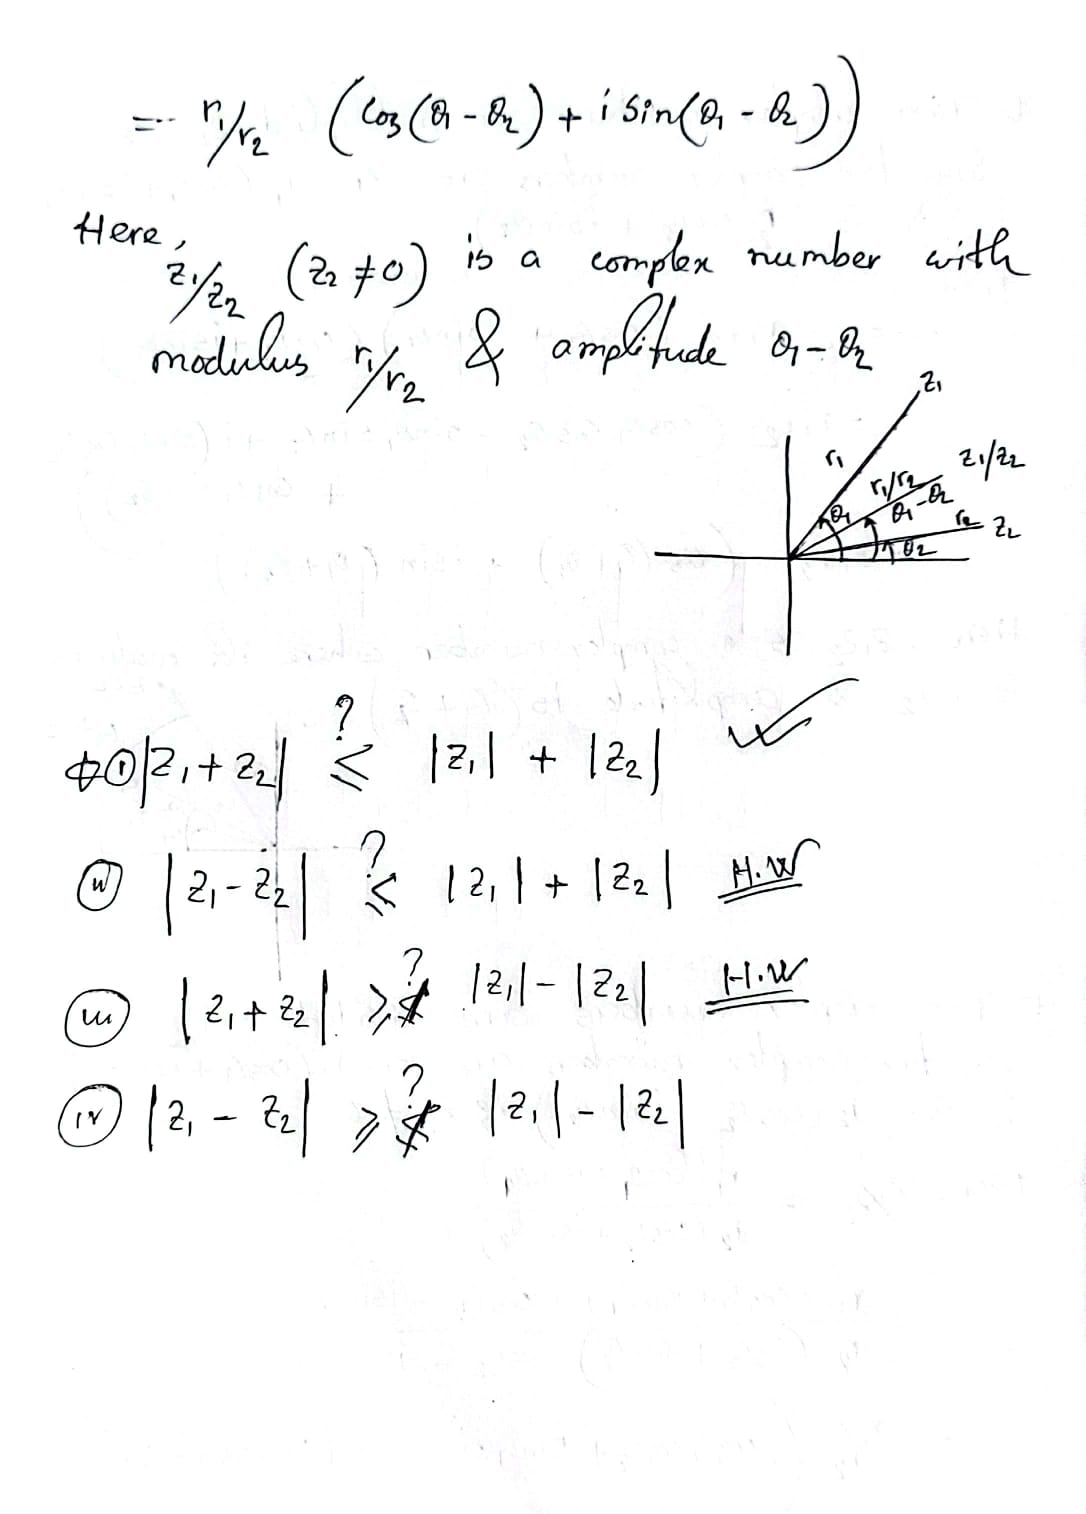 = r₁/r₂ (Cos(θ₁ - θ₂) + i Sin(θ₁ - θ₂))
Here,
z₁/z₂ (z₂ ≠ 0) is a complex number with
modulus r₁/r₂ & amplitude θ₁ - θ₂
z₁
r₁
z₁/z₂
r₁/r₂
θ₁
θ₁-θ₂
r₂
z₂
θ₂
① |z₁ + z₂| ?⩽ |z₁| + |z₂| ✓
(ii) |z₁ - z₂| ?⩽ |z₁| + |z₂| H.W
(iii) |z₁ + z₂| ⩾? |z₁| - |z₂| H.W
(iv) |z₁ - z₂| ⩾? |z₁| - |z₂|